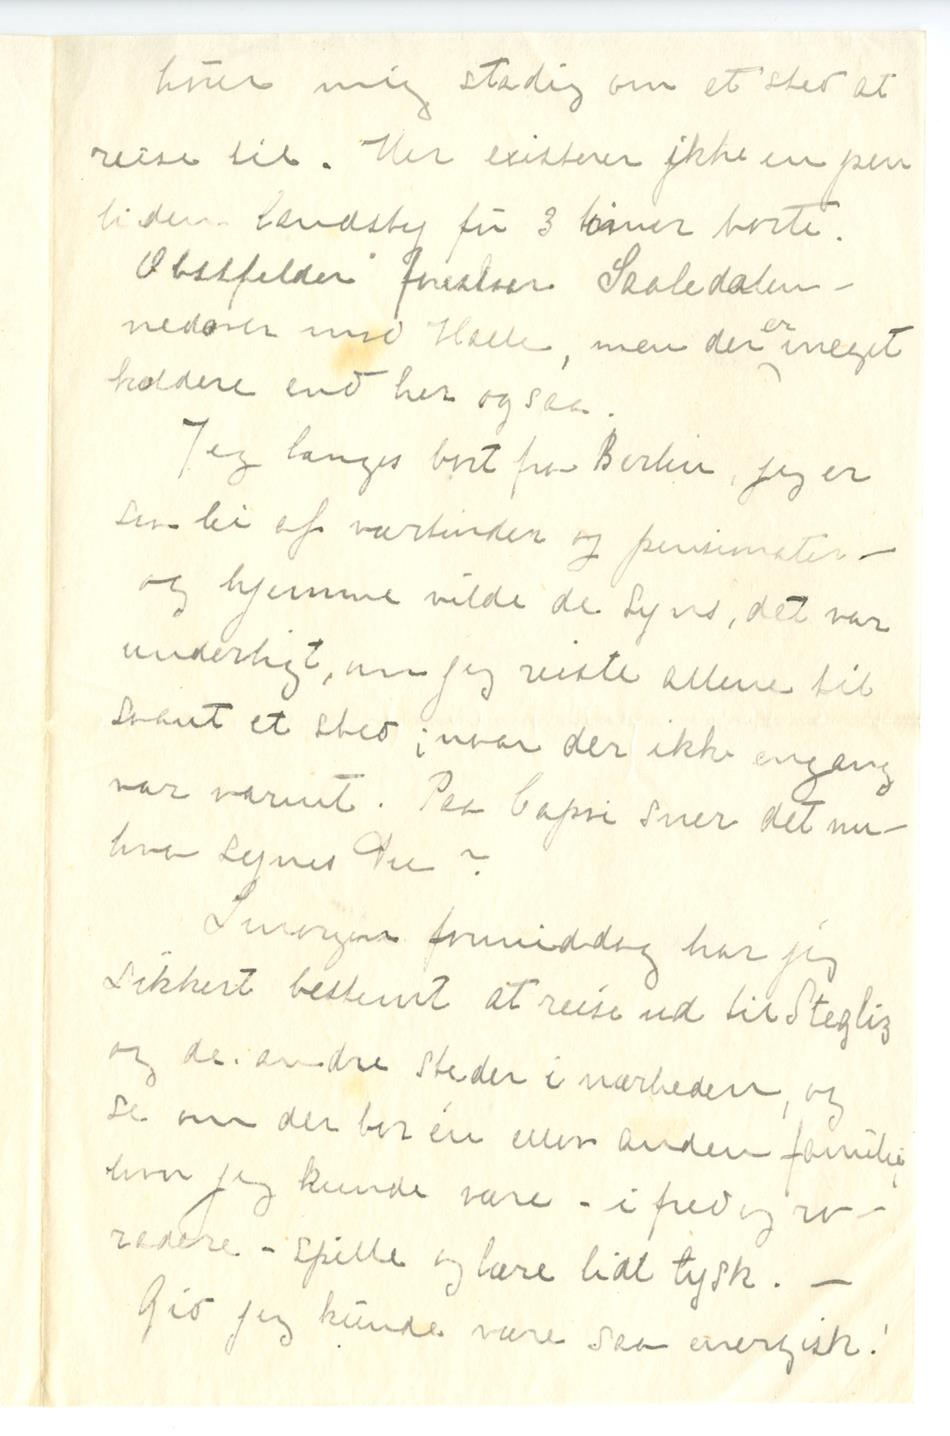 hører mig stadig om et sted at
reise til. Her existerer ikke en pen
liden landsby før 3 timer borte.
Obstfelder foreslaar Saaledalen –
nedover mod Halle, men der er meget
koldere end her ogsaa.
Jeg længes bort fra Berlin, jeg er
saa lei af værtinder og pensionater –
og hjemme vilde de synes, det var
underligt, om jeg reiste allene til
saant et sted; naar der ikke engang
var varmt. Paa Capri sner det nu –
hva synes Du?
Imorgen formiddag har jeg
sikkert bestemt at reise ud til Stegliz
og de andre steder i nærheden, og
se om der bor én eller anden familie,
hvor jeg kunde være – i fred og ro –
radere – spille og lære lidt tysk. –
Gid jeg kunde være saa energisk!